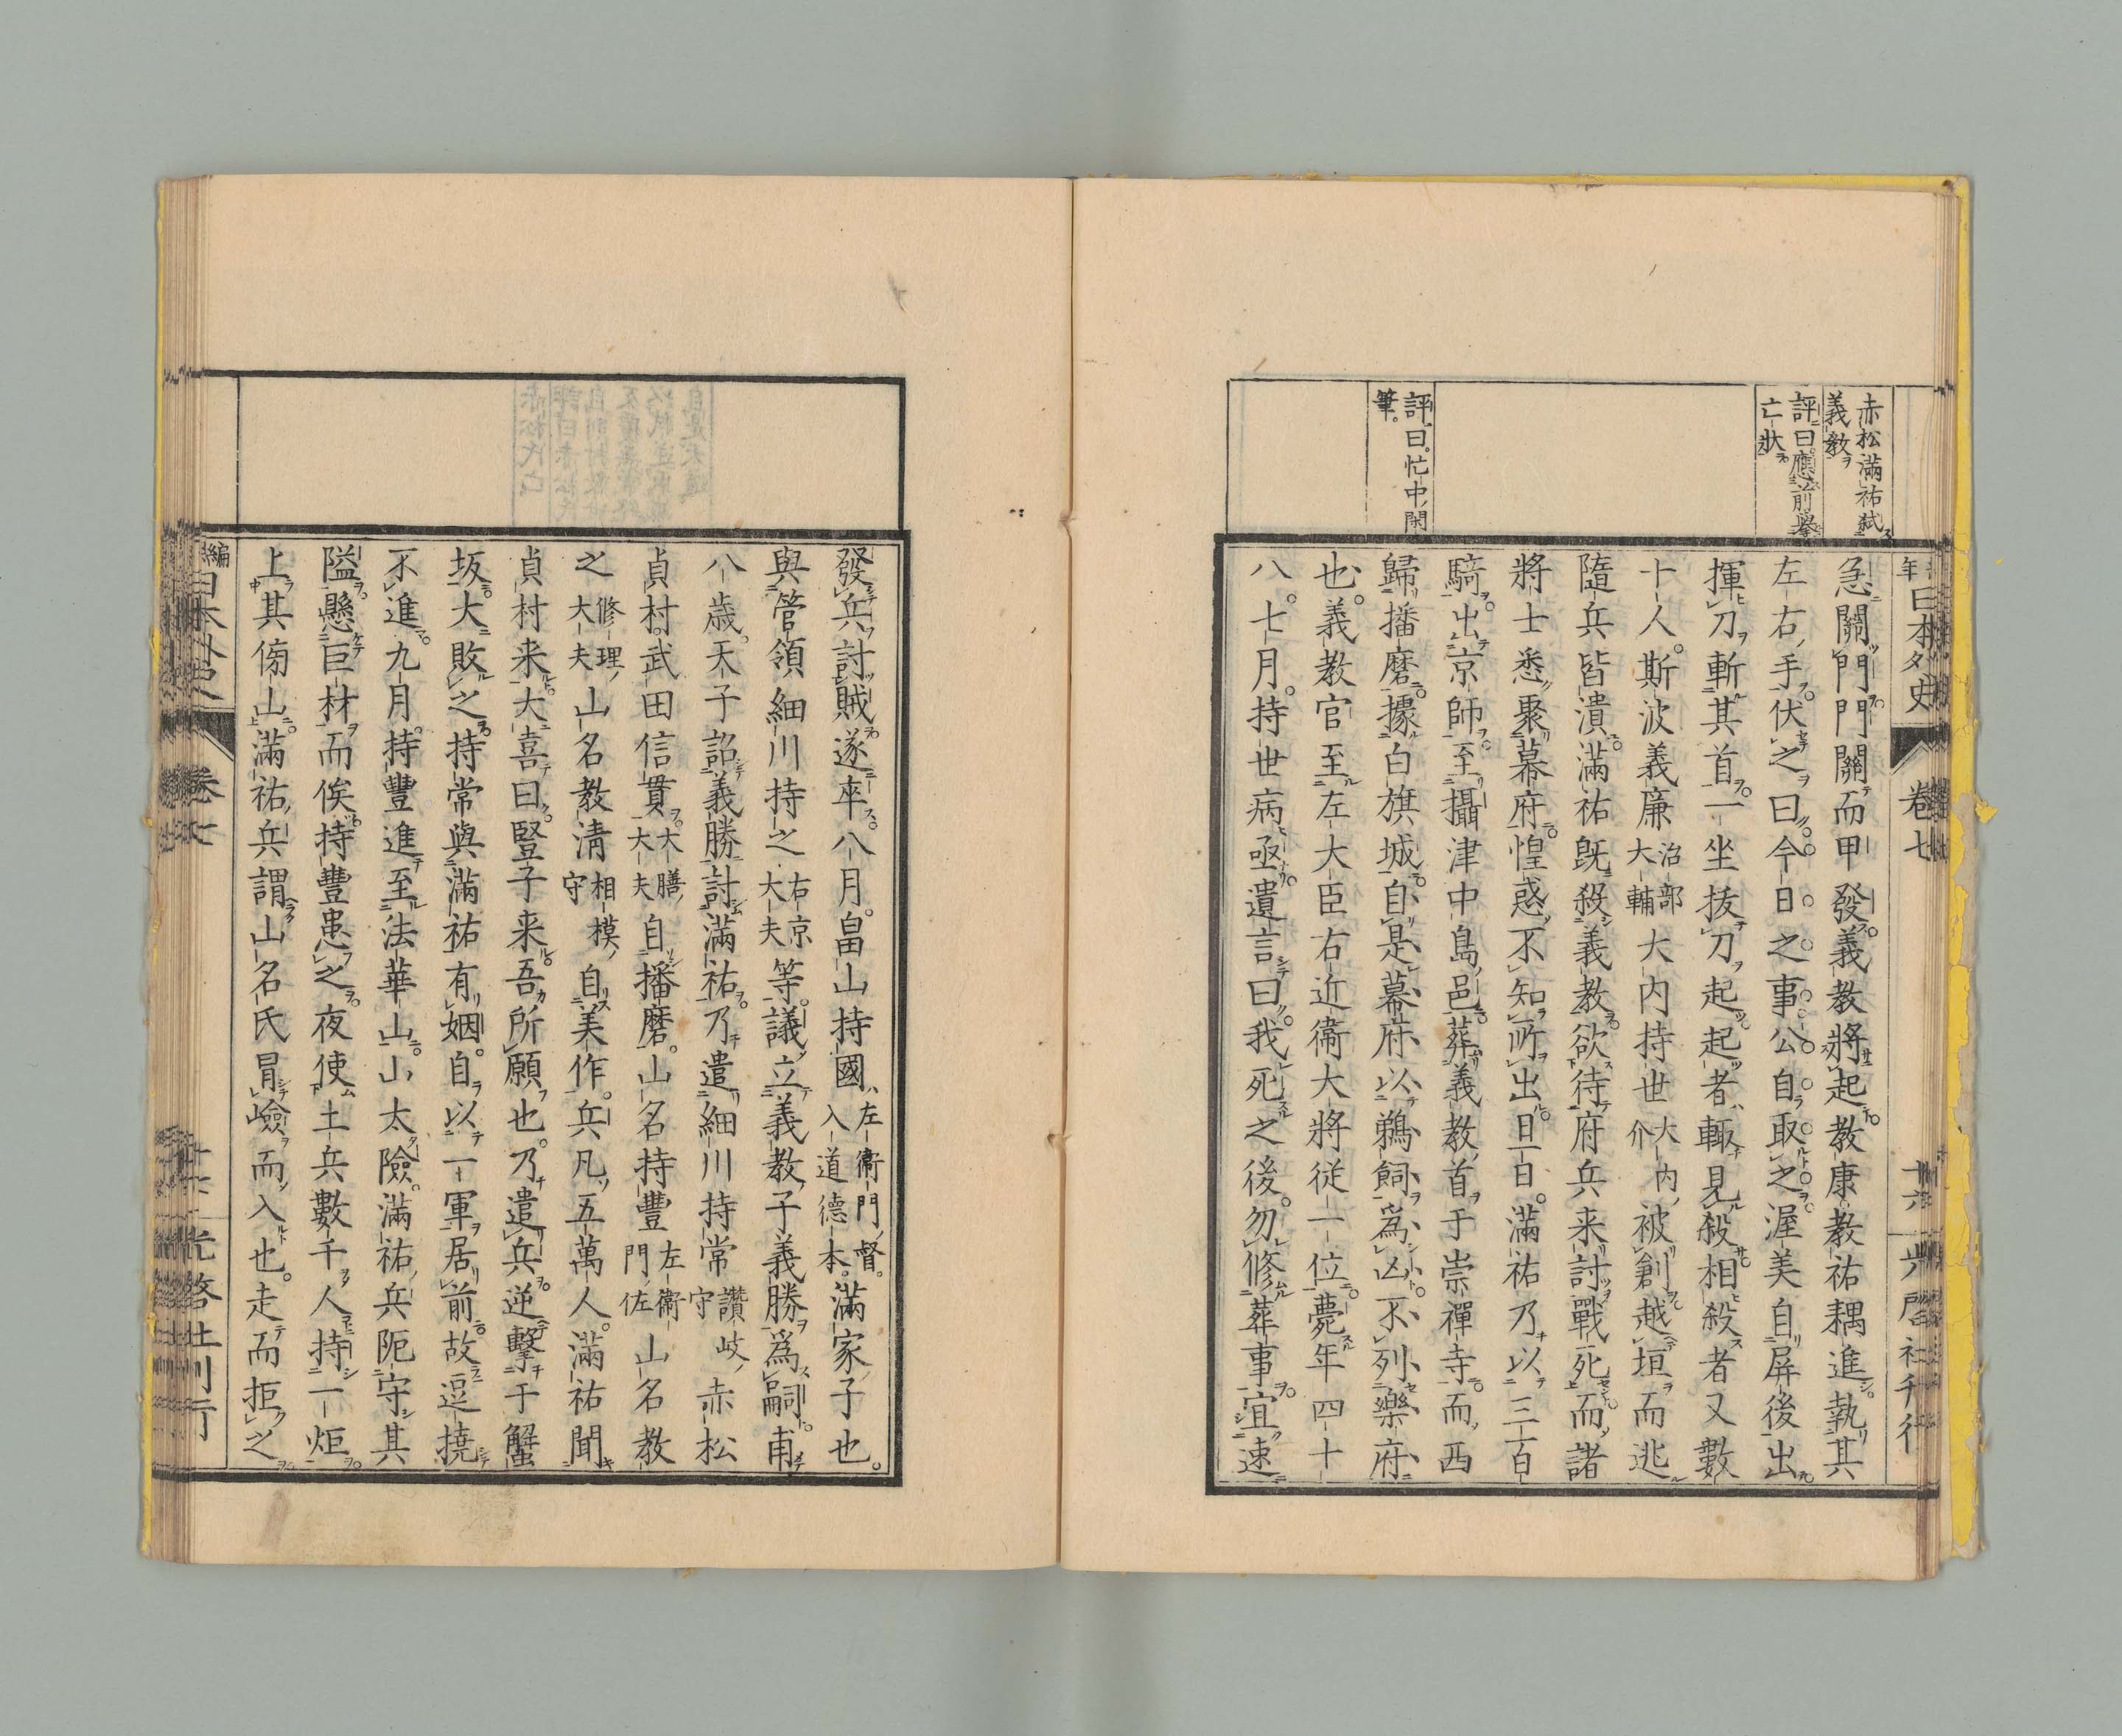 赤松滿祐弑
義教
評曰應前擧
亡狀
評曰忙中閑
筆
年日本外史
卷七
十六
光啓社刊行
急關門門關而甲發義教將起教康教祐耦進執其
左右手伏之曰今日之事公自取之渥美自屏後出
揮刀斬其首一坐拔刀起起者輙見殺相殺者又數
十人斯波義廉治部大輔大内持世大内介被創越垣而逃
隨兵皆潰滿祐既殺義教欲待府兵来討戰死而諸
將士悉聚幕府惶惑不知所出日一日滿祐乃以三百
騎出京師至攝津中島邑葬義教首于崇禪寺而西
歸播磨據白旗城自是幕府以鵜飼爲凶不列樂府
也義教官至左大臣右近衞大將従一位薨年四十
八七月持世病亟遺言曰我死之後勿修葬事宜速
發兵討賊遂卒八月畠山持國左衞門督入道德本滿家子也
與管領細川持之右京大夫等議立義教子義勝爲嗣甫
八歳天子詔義勝討滿祐乃遣細川持常讚岐守赤松
貞村武田信貫大膳大夫自播磨山名持豐左衞門佐山名教
之修理大夫山名教淸相模守自美作兵凡五萬人滿祐聞
貞村来大喜曰豎子来吾所願也乃遣兵逆擊于蟹
坂大敗之持常與滿祐有姻自以一軍居前故逗撓
不進九月持豐進至法華山山太險滿祐兵阨守其
隘懸巨材而俟持豐患之夜使土兵數千人人持一炬
上其傍山滿祐兵謂山名氏冒嶮而入也走而拒之
編日本外史
卷七
光啓社刊行